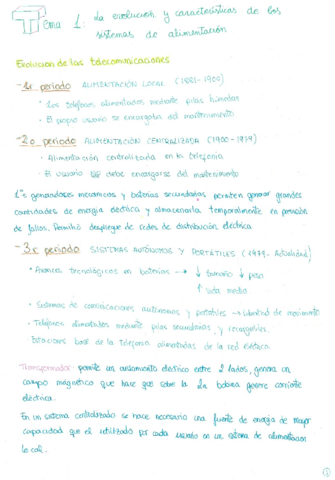 Tema 1: La evolución y características de los
sistemas de alimentación
Evolución de las telecomunicaciones
- 1er periodo ALIMENTACIÓN LOCAL (1881-1900)
• Los teléfonos alimentados mediante pilas húmedas
• El propio usuario se encargaba del mantenimiento
- 2o periodo ALIMENTACIÓN CENTRALIZADA (1900-1979)
• Alimentación centralizada en la telefonía
• El usuario debe encargarse del mantenimiento
1os generadores mecánicos y baterías secundarias permiten generar grandes
cantidades de energía eléctrica y almacenarla temporalmente en previsión
de fallos. Permitió despliegue de redes de distribución eléctrica
- 3er periodo SISTEMAS AUTÓNOMOS Y PORTÁTILES (1979-Actualidad)
• Avances tecnológicos en baterías → ↓ tamaño ↓ peso
↑ vida media
• Sistemas de comunicaciones autónomas y portables → libertad de movimiento
• Teléfonos alimentados mediante pilas secundarias y recargables
• Estaciones base de la telefonía alimentadas de la red eléctrica
Transformador: permite un aislamiento eléctrico entre 2 lados, genera un
campo magnético que hace que sobre la 2a bobina genere corriente
eléctrica.
En un sistema centralizado se hace necesario una fuente de energía de mayor
capacidad que el utilizado por cada usuario en un sistema de alimentación
local.
1